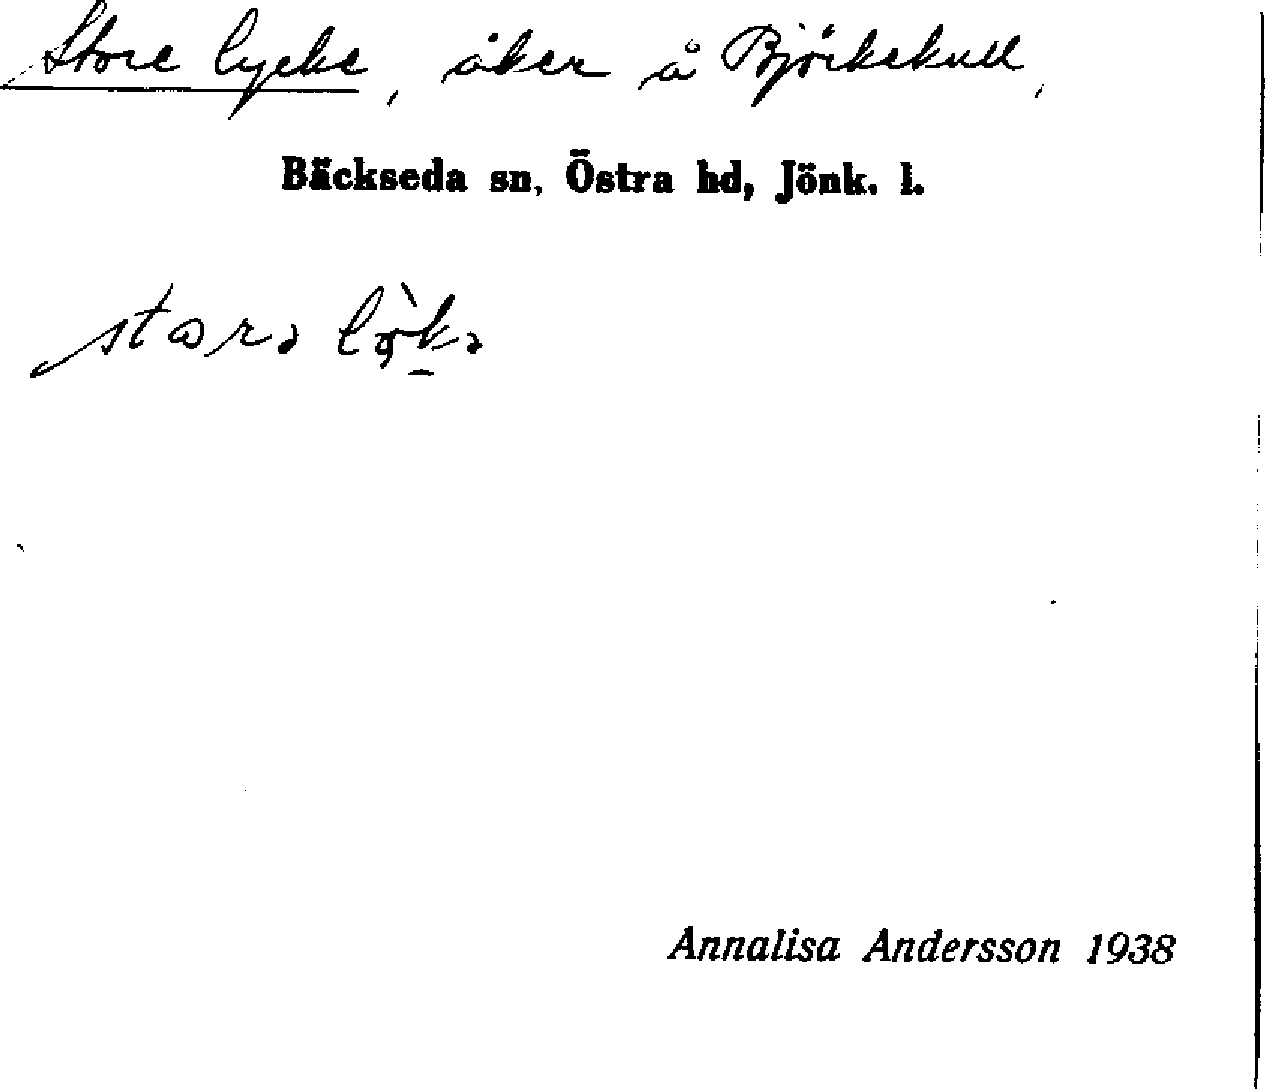 Store lycke, åker å Björkekull,
Bäckseda sn, Östra hd, Jönk. l.
Annalisa Andersson 1938